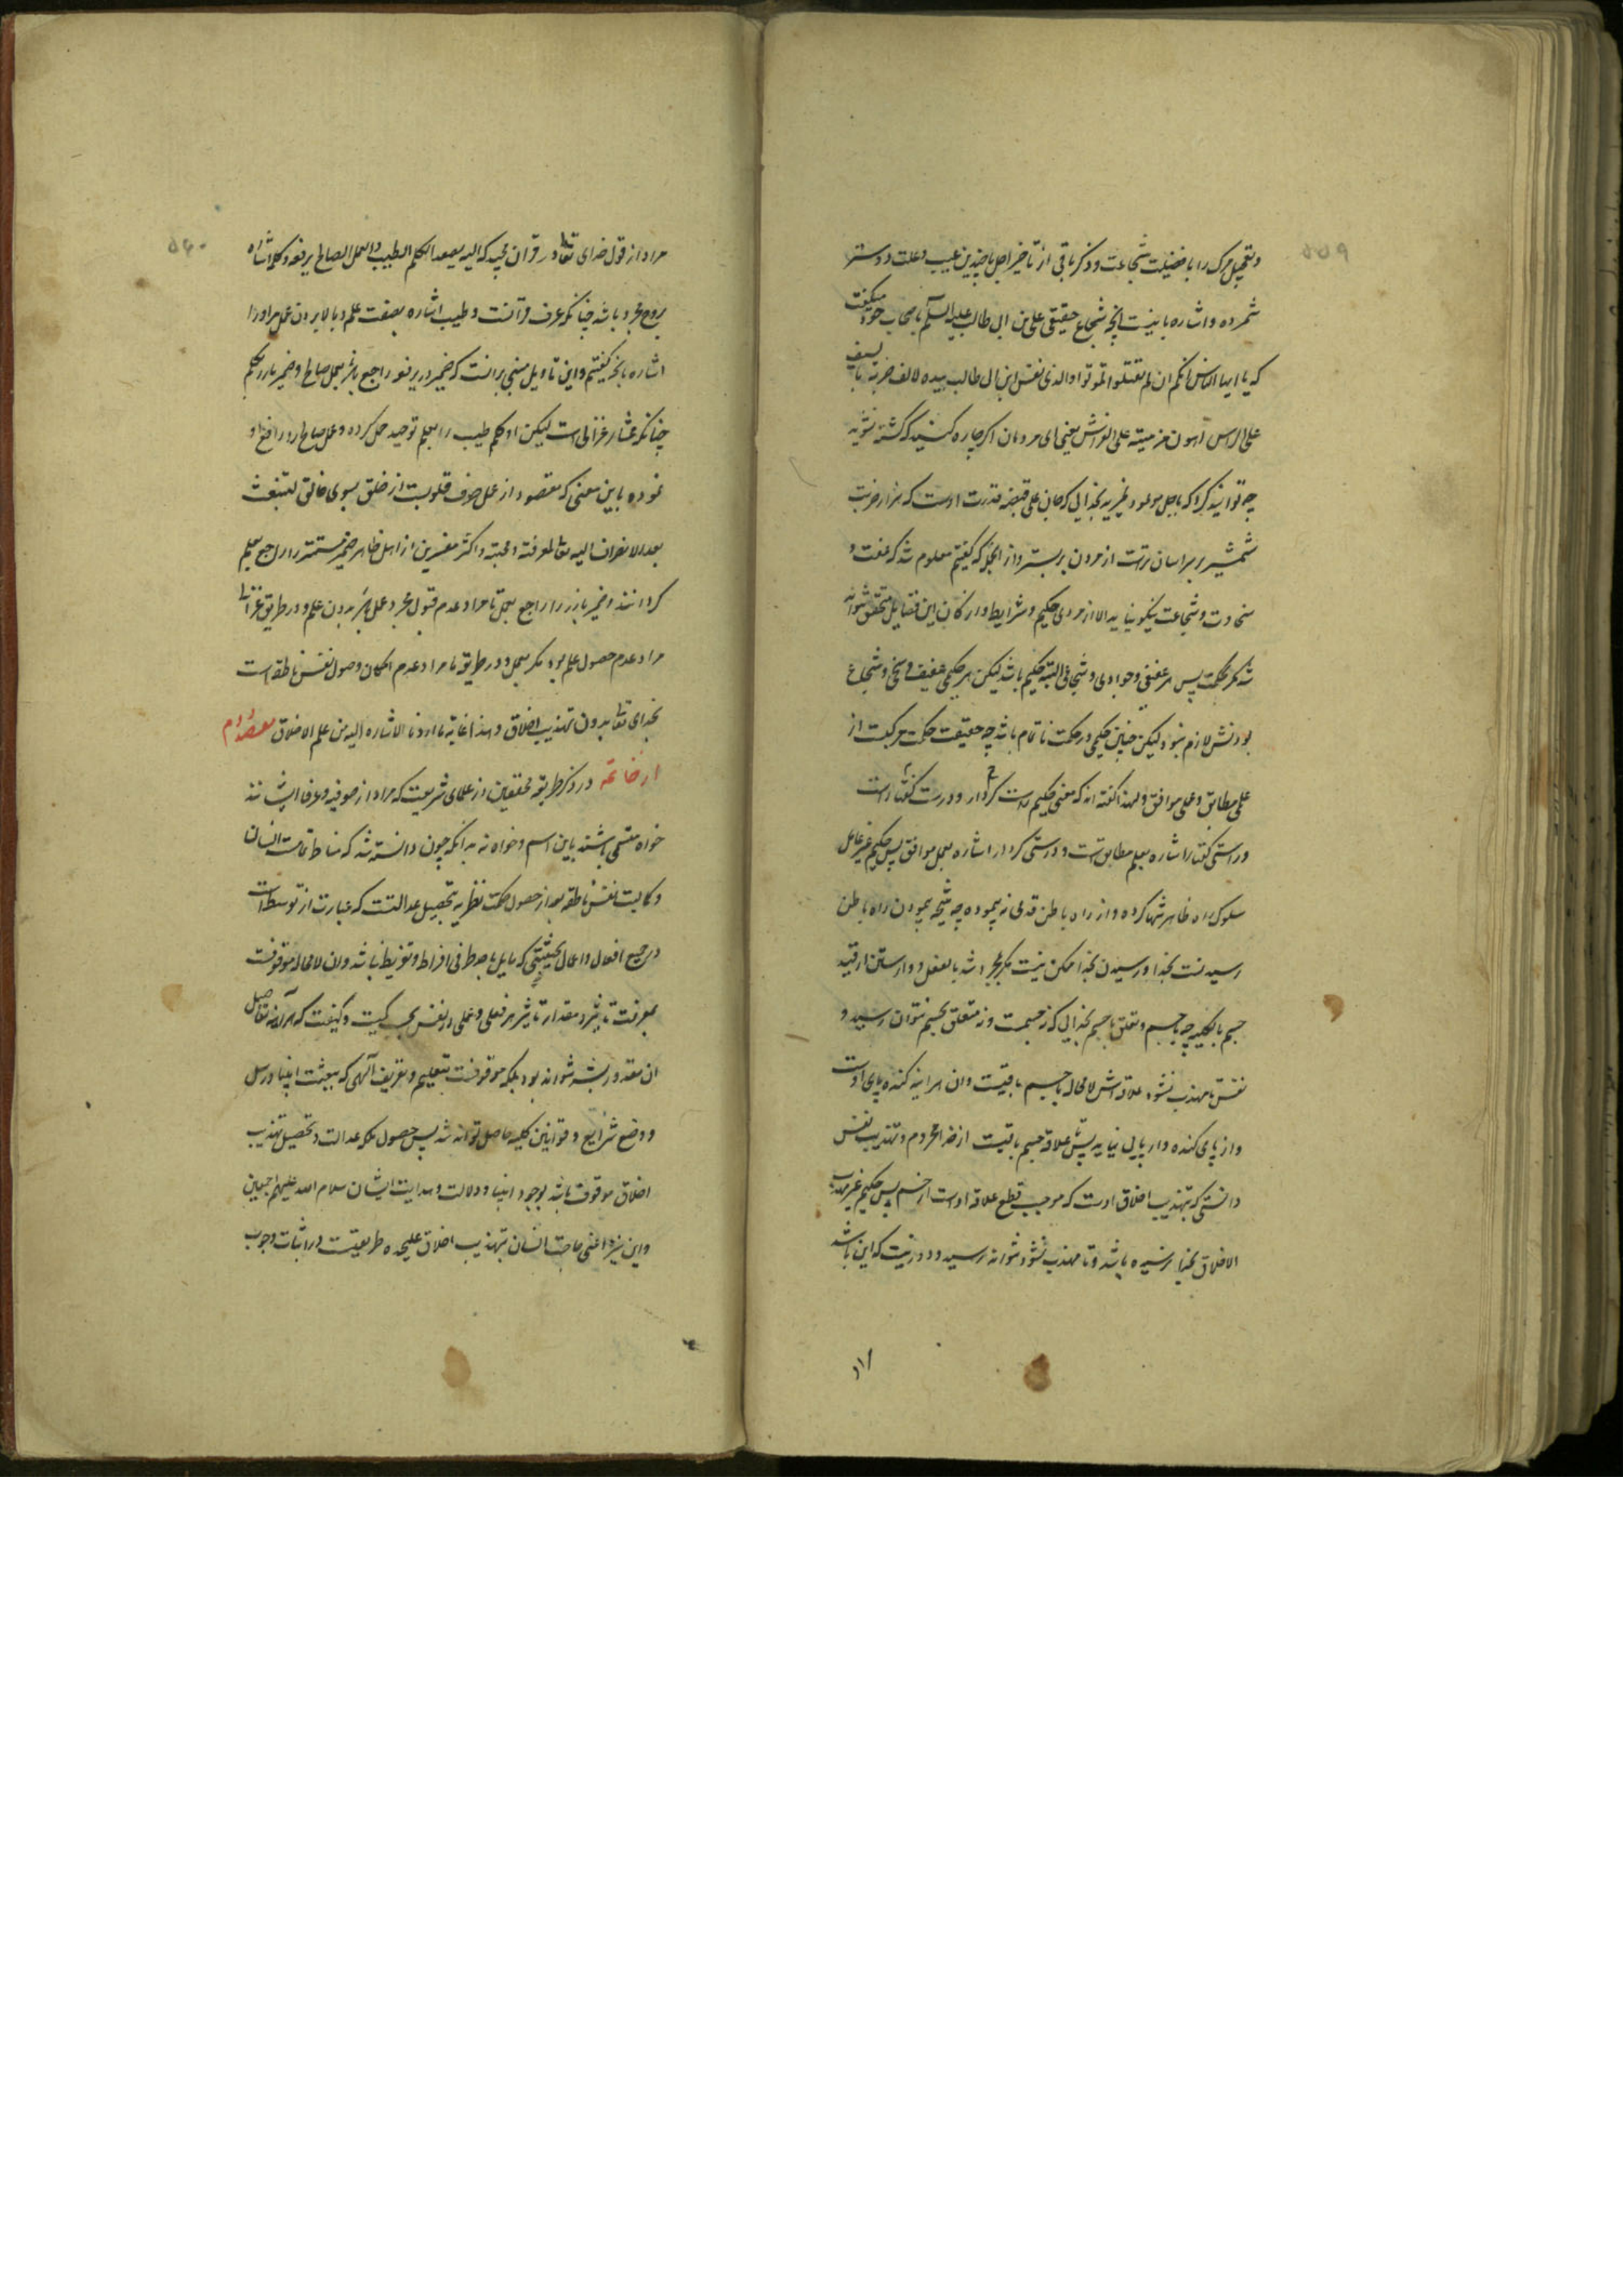 ۵۵۹
و تعجیل مرک را با فضیلت شجاعت و ذکر باقی از تأخیر اجل با چندین عیب و علت دوستر
شمرده و اشاره باینست انچه شجاع حقیقی علی بن ابی طالب علیه السلم با صحاب خود میکفت
که یا ایها الناس انکم ان لم تقتلوا لتموتوا والذی نفس ابن ابی طالب بیده لالف ضربة بالسیف
علی الراس اهون من میتة علی الفراش یعنی ای مردمان اکر چاره کنید که کشته نشوید
چه توانید کرد که باجل موعود نمیرید بخدایی که جان علی بقبضه قدرت اوست که هزار ضربت
شمشیر بر سر اسان ترست از مردن بر بستر و از انجه که کفتیم معلوم شد که عفت و
سخاوت و شجاعت نیکو نیاید الا از مردی حکیم و شرایط و ارکان این فضایل متحقق نتواند
شد مکر بحکمت پس هر عفیفی و جوادی و شجاعی البته حکیم باشد لیکن هر حکیمی عفیف و سخی و شجاع
بودنش لازم نبود لیکن چنین حکیمی در حکمت ناتمام باشد چه حقیقت حکمت مرکبست از
علمی مطابق و عملی موافق و لهذا کفته اند که معنی حکیم راست کردار و درست کفتار است
و راستی کفتار اشاره بعلم مطابق است و درستی کردار اشاره بعمل موافق پس حکیم غیر عامل
سلوک راه ظاهر تنها کرده و از راه باطن قدمی نه پیموده چه نتیجه پیمودن راه باطن
رسیدنست بخدا و رسیدن بخدا ممکن نیست مکر بمجرد شد بالفعل و وارستن از قید
جسم بالکلیه چه با جسم و تعلق با جسم بخدایی که نه جسمست و نه متعلق بجسم نتوان رسید و
نفس تا مهذب نشود علاقه اش لامحاله با جسم باقیست و ان هراینه کنده پای اوست
و از پای کنده دار پایی نیاید پس تا علاقه جسم باقیست از خدا محروم و تهذیب نفس
دانستی که تهذیب اخلاق اوست که موجب قطع علاقه اوست از جسم پس حکیم غیر مهذب
الاخلاق بخدا نرسیده باشد و تا مهذب نشود نتواند رسید و دور نیست که این باشد
۵۶۰
مراد از قول خدای تعالی در قران مجید که الیه یصعد الکلم الطیب و العمل الصالح یرفعه و کلم اشاره
بروح مجرد باشد چنانکه عرف قرانست و طیب اشاره بصفت علم و بالا بردن عمل مراو را
اشاره بانچه کفتیم و این تاویل مبنی برانست که ضمیر در یرفعه راجع باشد بعمل صالح و ضمیر بارز بکلم
چنانکه مختار غزالی است لیکن او کلم طیب را بعلم توحید حمل کرده و عمل صالح را رافع او
نموده باین معنی که مقصود از عمل صرف قلوبست از خلق بسوی خالق لتنبعث
بعد الانصراف الیه تعالی لمعرفته و محبته و اکثر مفسرین از اهل ظاهر ضمیر مستتر را راجع بعلم
کردانند و ضمیر بارز را راجع بعمل تا مراد عدم قبول مجرد عمل باشد بدون علم و در طریق غزالی
مراد عدم حصول علم بود مکر بعمل و در طریق ما مراد عدم امکان وصول نفس ناطقه است
بخدای تعالی بدون تهذیب اخلاق و هذا غایة ما اردنا الاشاره الیه من علم الاخلاق مقصد دوم
از خاتمه در ذکر طریقه محققین از علمای شریعت که مراد از صوفیه و عرفا ایشانند
خواه متسمی باشند باین اسم و خواه نه بدانکه چون دانسته شد که مناط تمامیت انسان
و کمالیت نفس ناطقه بعد از حصول حکمت نظریه تحصیل عدالتست که عبارت از توسط است
در جمیع افعال و اعمال بحیثیتی که مایل باحد طرفی افراط و تفریط نباشد و ان لامحاله موقوفست
بمعرفت تاثیر و مقدار تاثیر هر فعلی و عملی در نفس بحسب کمیت و کیفیت که هراینه تفاصیل
ان مقدور بشر نتواند بود بلکه موقوفست بتعلیم و تعریف الهی که ببعثت انبیا و رسل
و وضع شرایع و قوانین کلیه حاصل تواند شد پس حصول ملکه عدالت و تحصیل تهذیب
اخلاق موقوف باشد بوجود انبیا و دلالت و هدایت ایشان سلام الله علیهم اجمعین
و این نیز اعنی حاجت انسان بتهذیب اخلاق علیحده طریقیست در اثبات وجوب